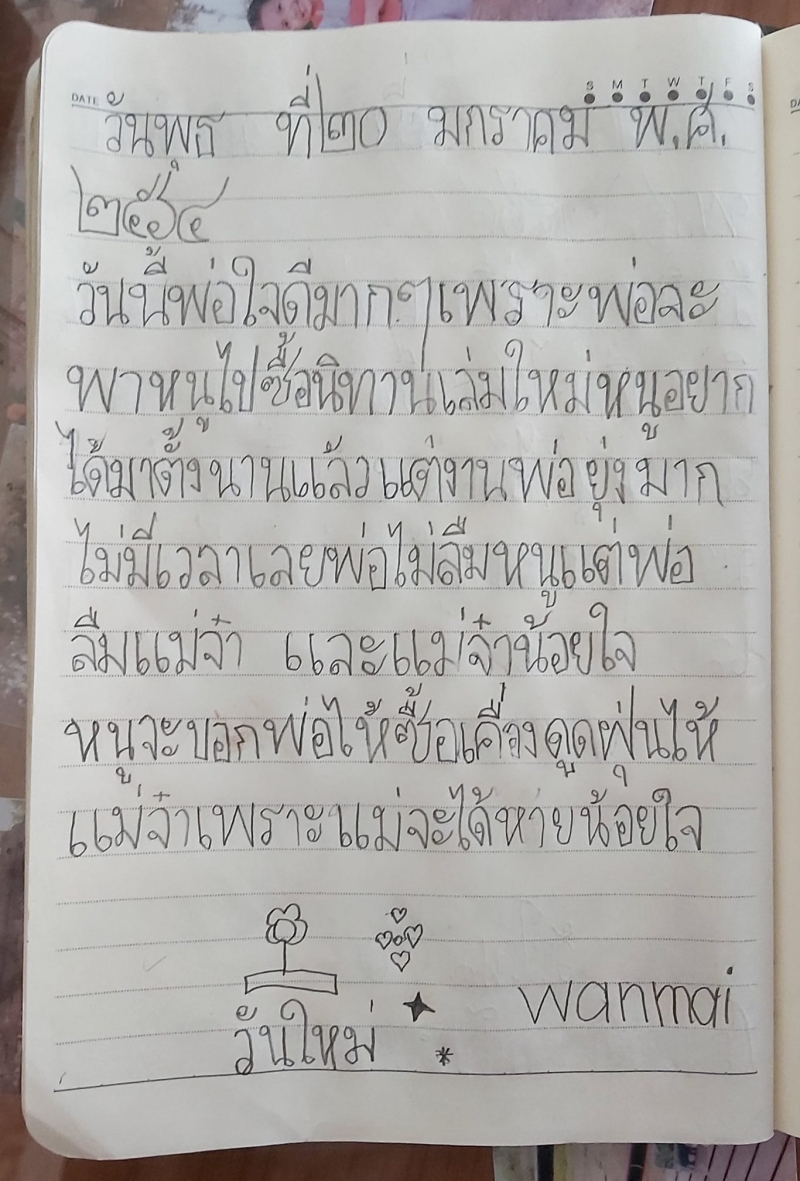 DATE S M T W T F S
วันพุธ ที่๒๐ มกราคม พ.ศ.
๒๕๖๔
วันนี้พ่อใจดีมากๆเพราะพ่อละ
พาหนูไปซื้อนิทานเล่มใหม่หนูอยาก
ได้มาตั้งนานแล้วแต่งานพ่อยุ่งมาก
ไม่มีเวลาเลยพ่อไม่ลืมหนูแต่พ่อ
ลืมแม่จ๋า และแม่จ๋าน้อยใจ
หนูจะบอกพ่อให้ซื้อเครื่องดูดฝุ่นให้
แม่จ๋าเพราะแม่จะได้หายน้อยใจ
วันใหม่ wanmai